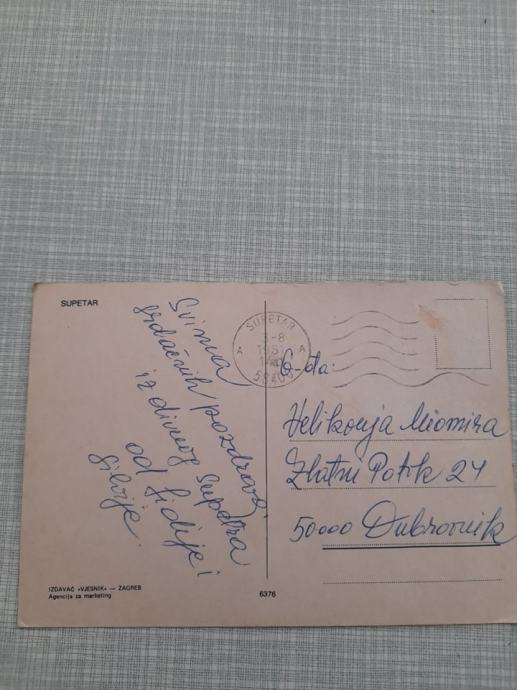 SUPETAR
Svima
srdačnih pozdrava
iz divnog Supetra
od Lidije i
Silvije.
SUPETAR
A A
G-đa:
Velikonja Miomira
Zlatni Potok 24
50000 Dubrovnik
IZDAVAČ »VJESNIK« — ZAGREB
Agencija za marketing
6376